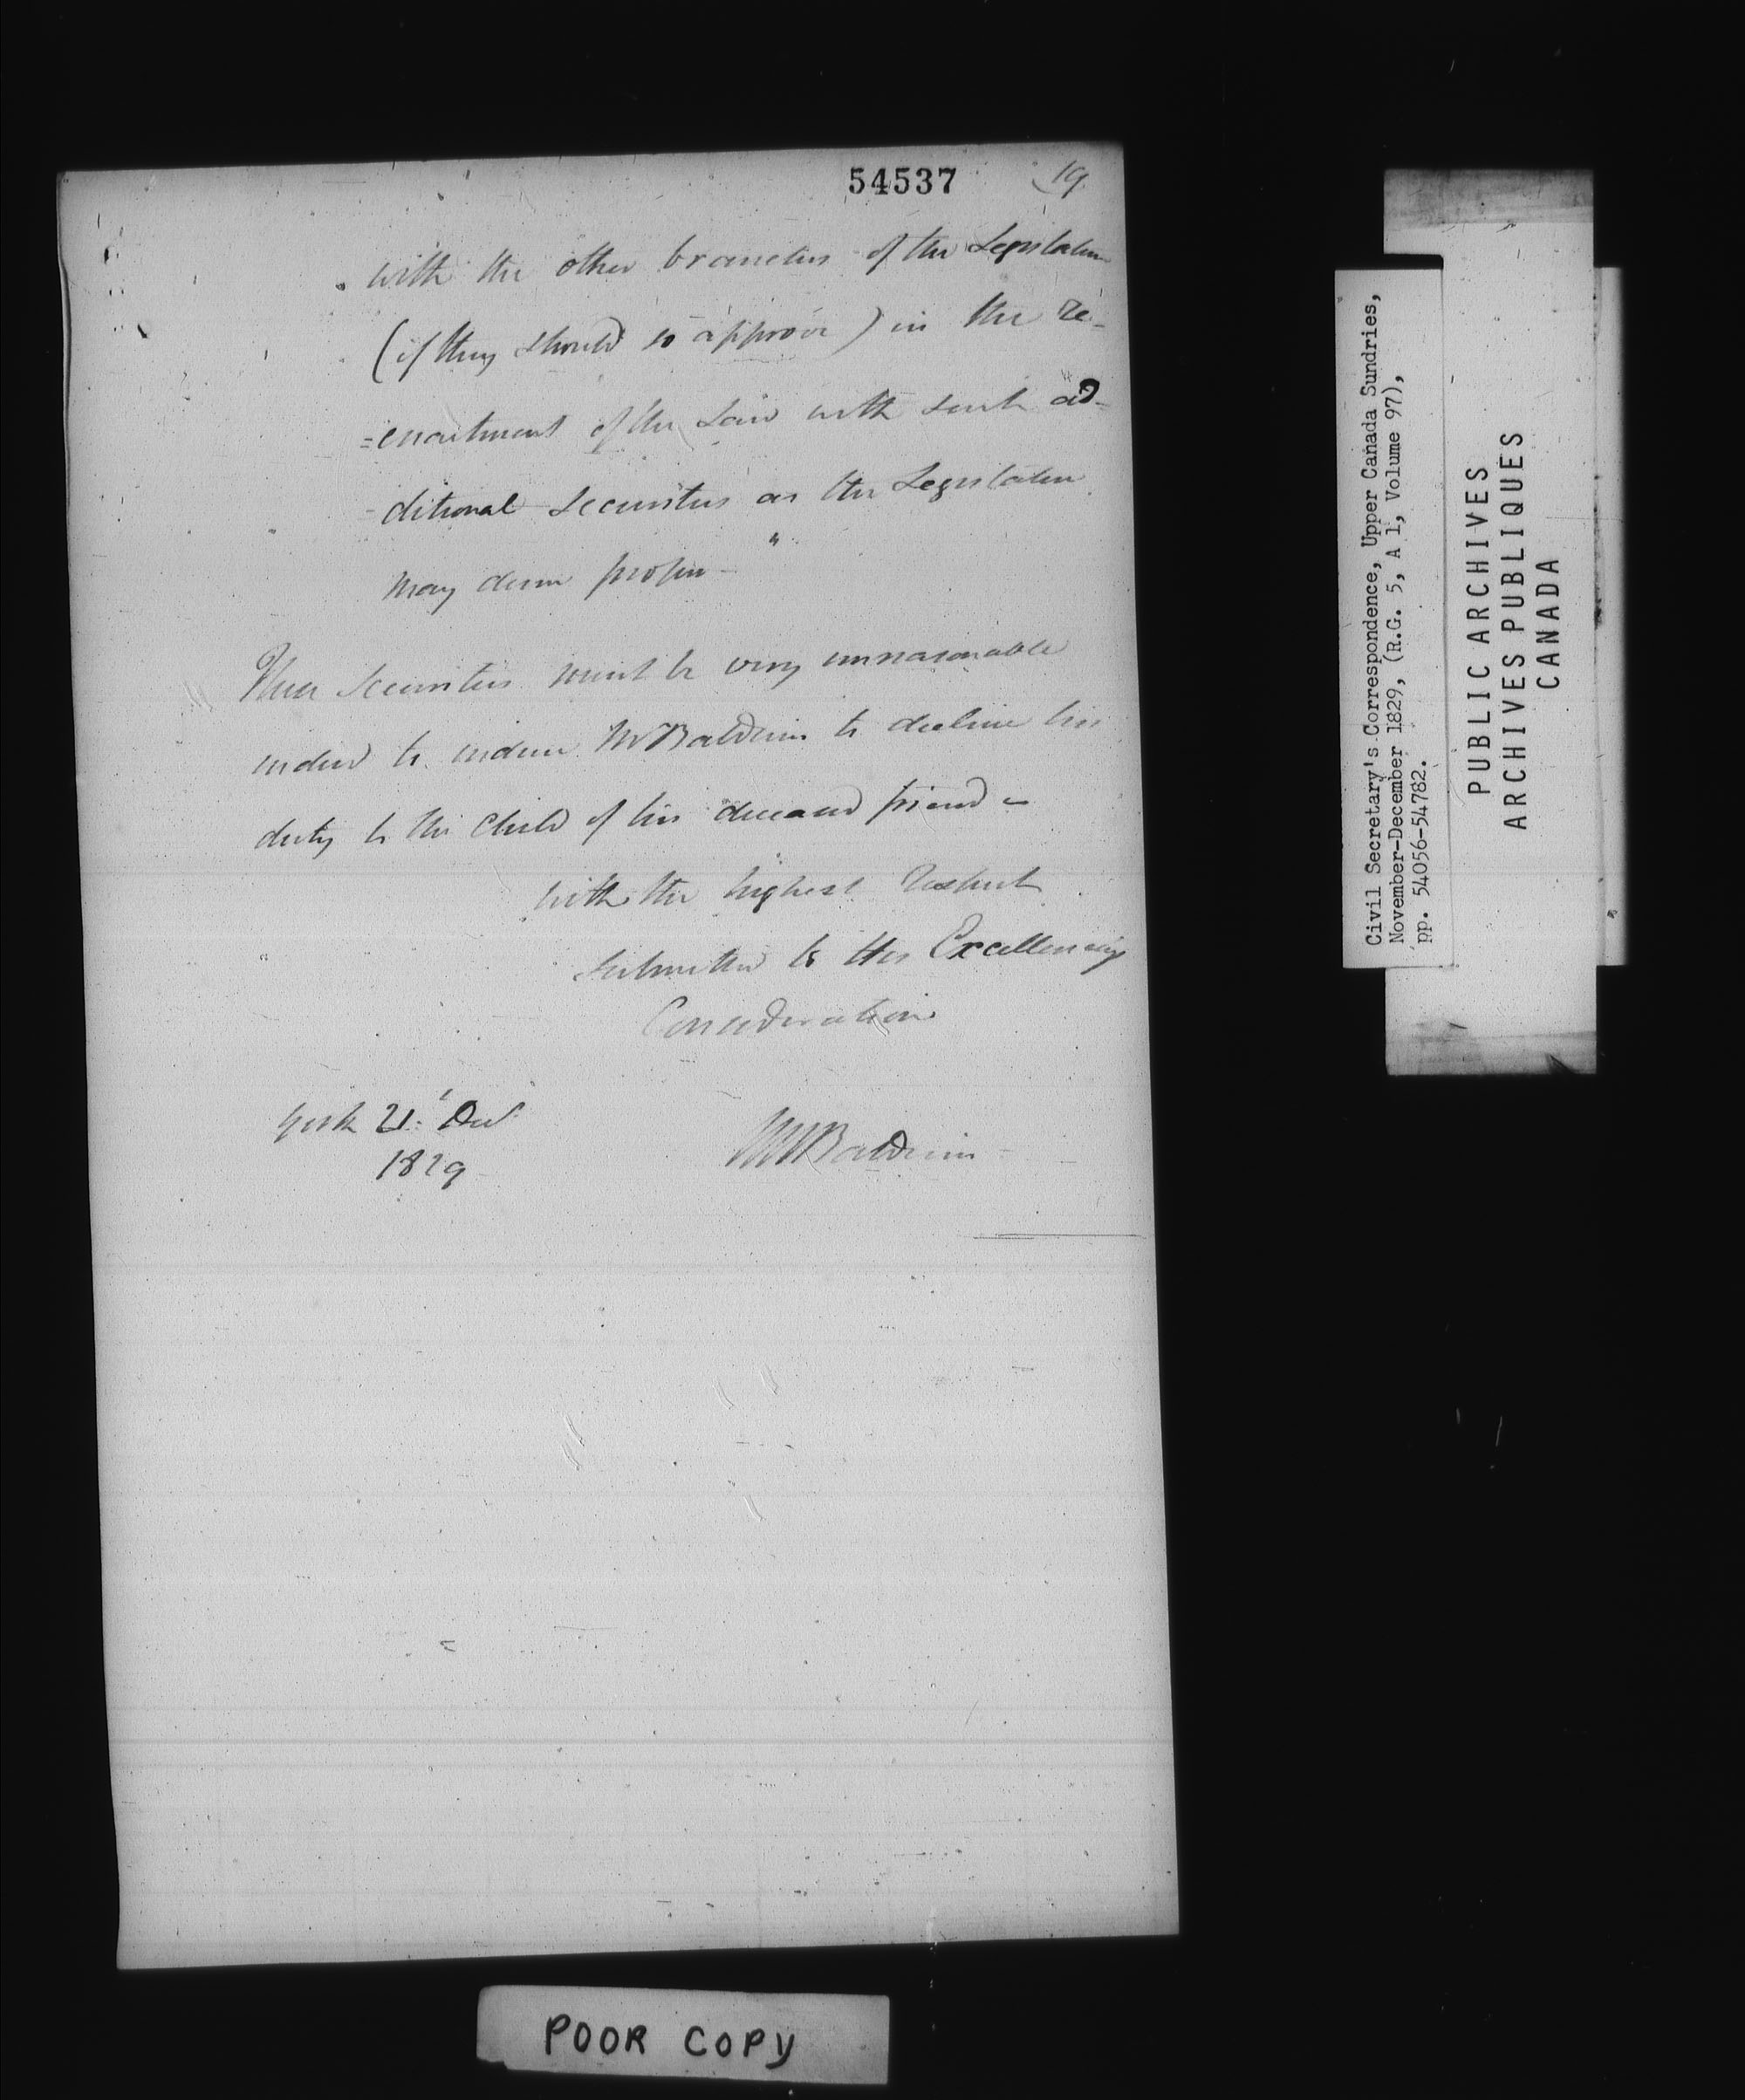 54537
19
with the other branches of the Legislature
(if they should so approve) in the re-
=enactment of the Law with such ad=
=ditional securities as the Legislature
may deem proper - "
These securities must be very unreasonable
indeed to induce Mr Baldwin to decline his
duty to the child of his deceased friend -
with the highest respect
submitted to His Excellency
Consideration
York 21st Decr
1829
WWBaldwin
Civil Secretary's Correspondence, Upper Canada Sundries,
November-December 1829, (R.G. 5, A 1, Volume 97),
pp. 54056-54782.
PUBLIC ARCHIVES
ARCHIVES PUBLIQUES
CANADA
POOR COPY